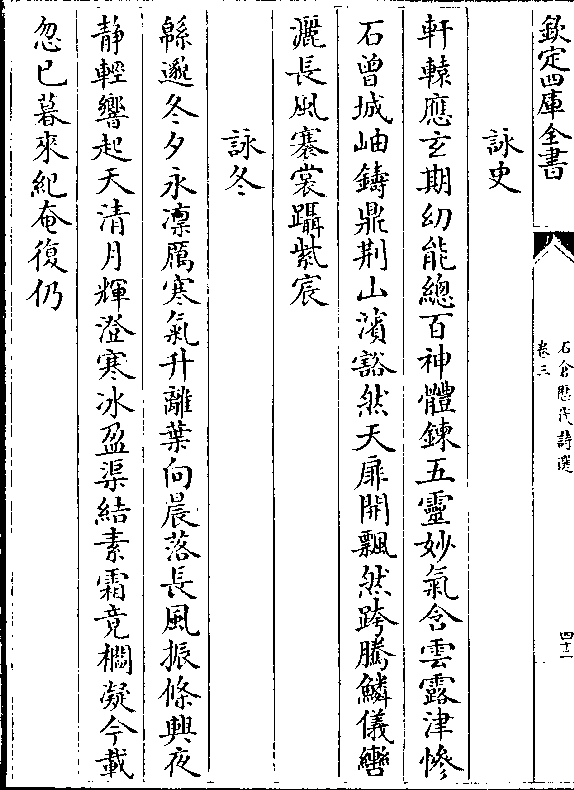 欽定四庫全書
石倉歷代詩選
卷三
四十二
詠史
軒轅應玄期幼能總百神體鍊五靈妙氣含雲露津慘
石曾城岫鑄鼎荆山濱豁然天扉開飄然跨騰鱗儀轡
灑長風褰裳躡紫宸
詠冬
緜邈冬夕永凛厲寒氣升離葉向晨落長風振條興夜
静輕響起天清月輝澄寒冰盈渠結素霜竟櫩凝今載
忽已暮來紀奄復仍